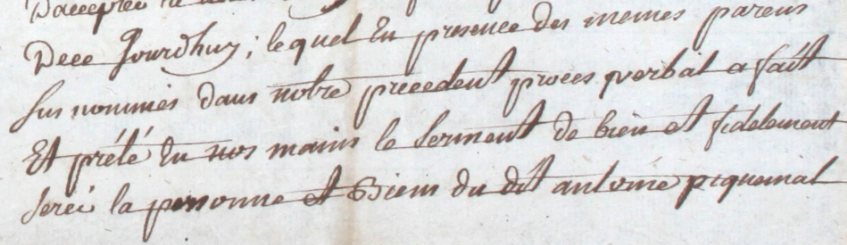 D'accepter
Dece Jourdhuy; lequel En presence des memes parens
sus nommés dans notre precedent proces verbal a fait
Et prété En nos mains le serment de bien et fidelement
la personne et Biens du dit antoine piquemal